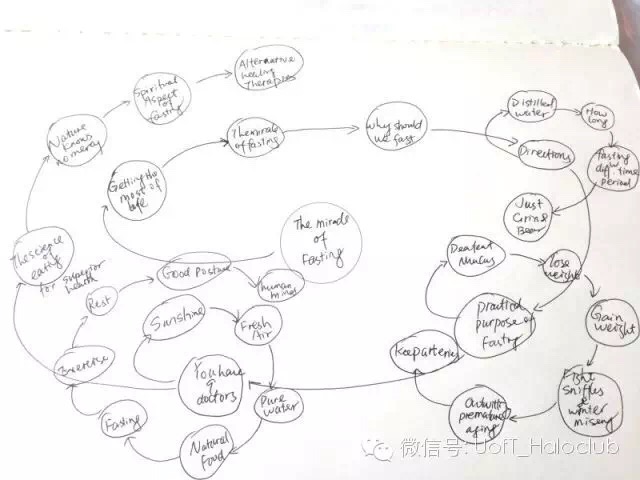 Alternative
healing
therapies
Spiritual
Aspect of
fasting
Nature
knows
no mercy
The science of
eating
for superior
health
The miracle
of
Fasting
Getting the
most of
life
The miracle
of fasting
Why should
we fast
Directions
Distilled
water
How
long
fasting
diff time
period
Just
Grin &
Bear
practical
purpose of
fasting
Defeat
Mucus
lose
weight
Gain
weight
Fight
Sniffles
&
winter
misery
Outwit
premature
aging
Keep arteries
You have
9
doctors
Sunshine
Fresh
Air
Pure
water
Natural
food
Fasting
Exercise
Rest
Good posture
human
mind
微信号: UofT_Haloclub